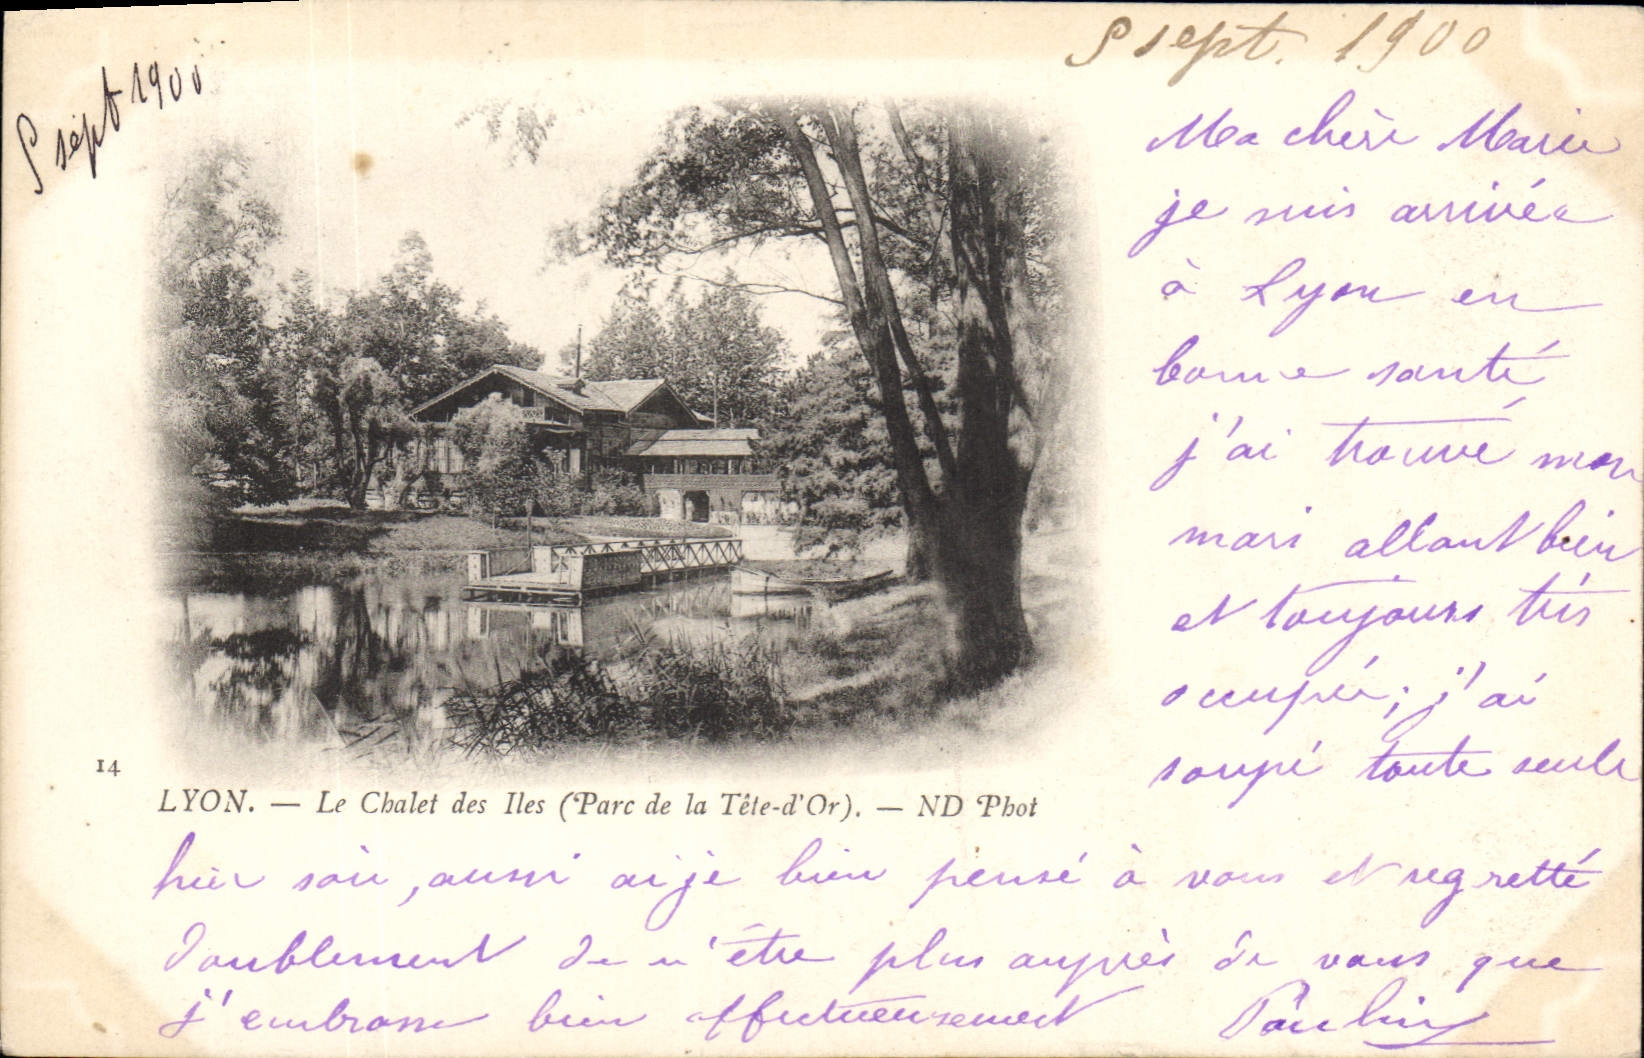 8 sept. 1900
8 sept 1900
Ma chère Marie
je suis arrivée
à Lyon en
bonne santé
j'ai trouvé mon
mari allant bien
et toujours très
occupé; j'ai
soupé toute seule
14
LYON. — Le Chalet des Iles (Parc de la Tête-d'Or). — ND Phot
hier soir, aussi ai je bien pensé à vous et regretté
doublement de n'être plus auprès de vous que
j'embrasse bien affectueusement Pauline